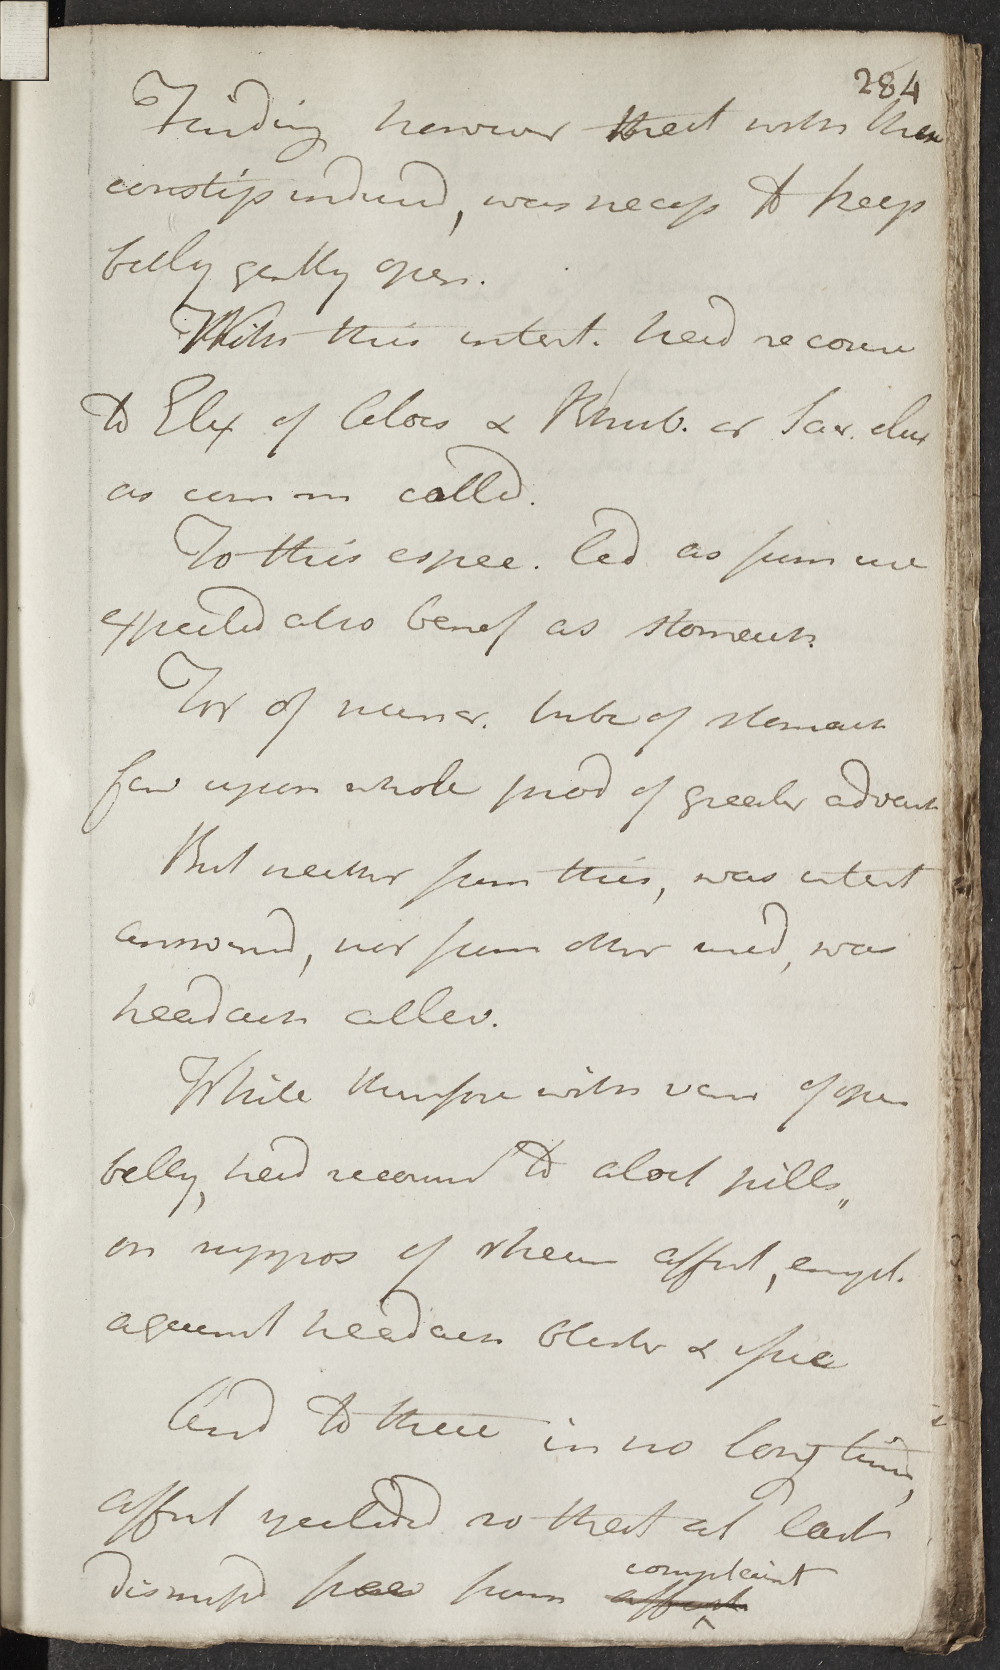 284
Finding however that with these
constip induced, was necess to keep
belly gently open.
With this intent. had recour
to Elix of Aloes & Rhub. or Sac. elix
as comm called.
To this espec. led as from use
expected also benef as stomach.
For of numer. tribe of stomach
few upon whole prod of greater advant
But neither from this, was intent
answered, nor from other med, was
headach allev.
While therefore with view of open
belly, had recourse to aloet pills,
on suppos of rheum affect, empl.
against headach blister & spec
And to these in no long time,
affect yielded so that at last
dismissd free from complaint
affect